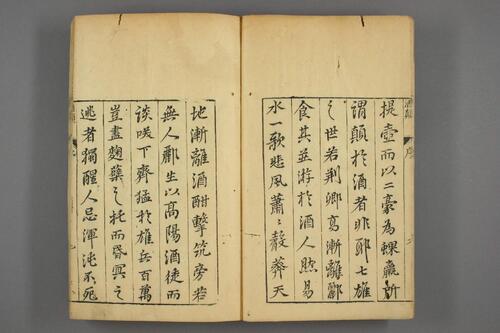 提壺而以二豪為蜾蠃所
謂顛於酒者非耶七雄
之世若荊卿高漸離酈
食其並游於酒人然易
水一歌悲風蕭〻聲莽天
地漸離酒酣擊筑旁若
無人酈生以高陽酒徒而
談咲下齊猛於雄兵百萬
豈盡麴糵之牝而昏冥之
逃者獨醒人忌渾沌不死